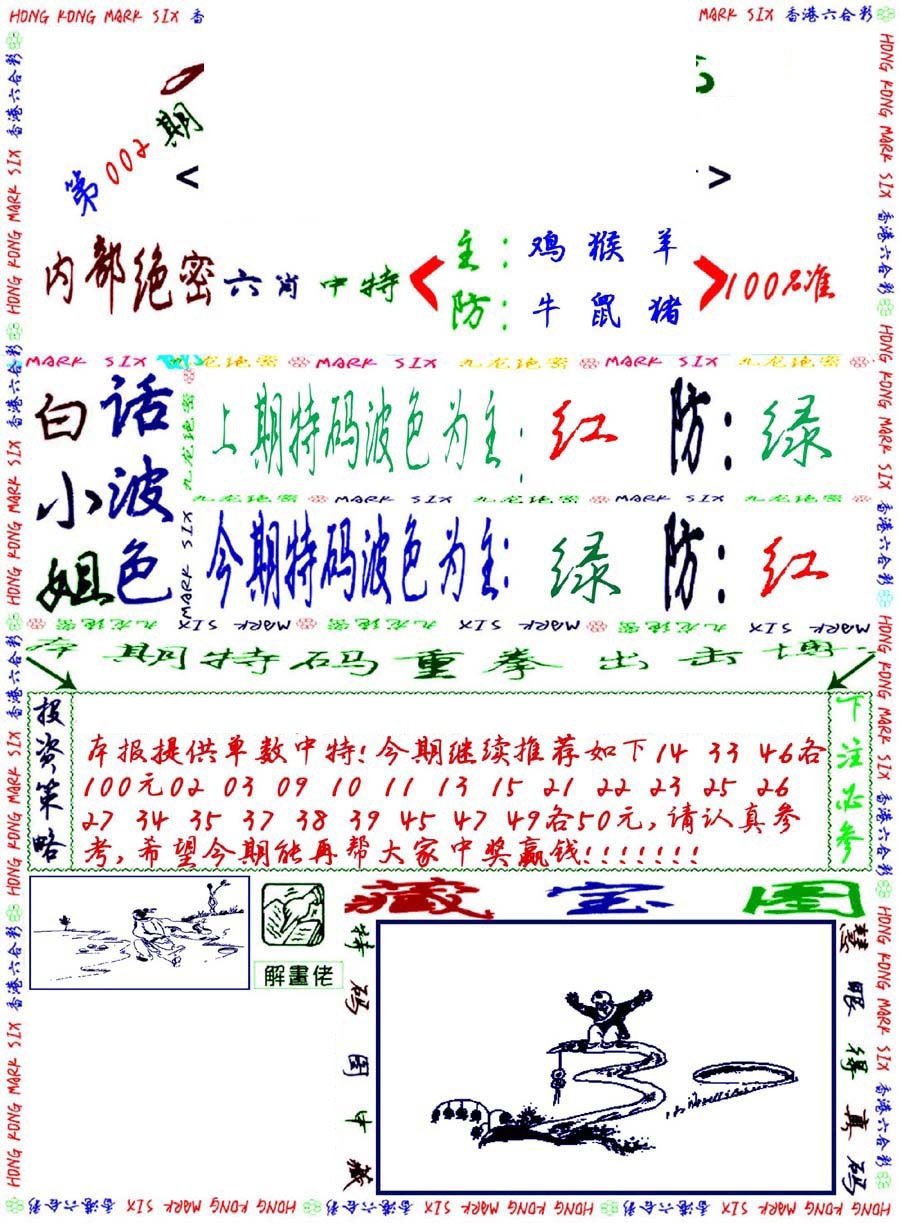 HONG KONG MARK SIX 香
MARK SIX 香港六合彩
第002期
< >
内部绝密六肖中特
主：鸡猴羊
防：牛鼠猪
100%准
MARK SIX 九龙绝密 MARK SIX 九龙绝密 MARK SIX 九龙绝密
白话
小波
姐色
上期特码波色为主：红 防：绿
九龙绝密 MARK SIX 九龙绝密 MARK SIX 九龙绝密
今期特码波色为主：绿 防：红
九龙绝密 MARK SIX 九龙绝密 MARK SIX 九龙绝密 MARK SIX
期特码重拳出击
投资策略
本报提供单数中特!今期继续推荐如下14 33 46各
100元02 03 09 10 11 13 15 21 22 23 25 26
27 34 35 37 38 39 45 47 49各50元,请认真参
考,希望今期能再帮大家中奖赢钱!!!!!!!
下注必参
藏宝图
解畫佬
特码图中藏
慧眼得真码
HONG KONG MARK SIX 香港六合彩